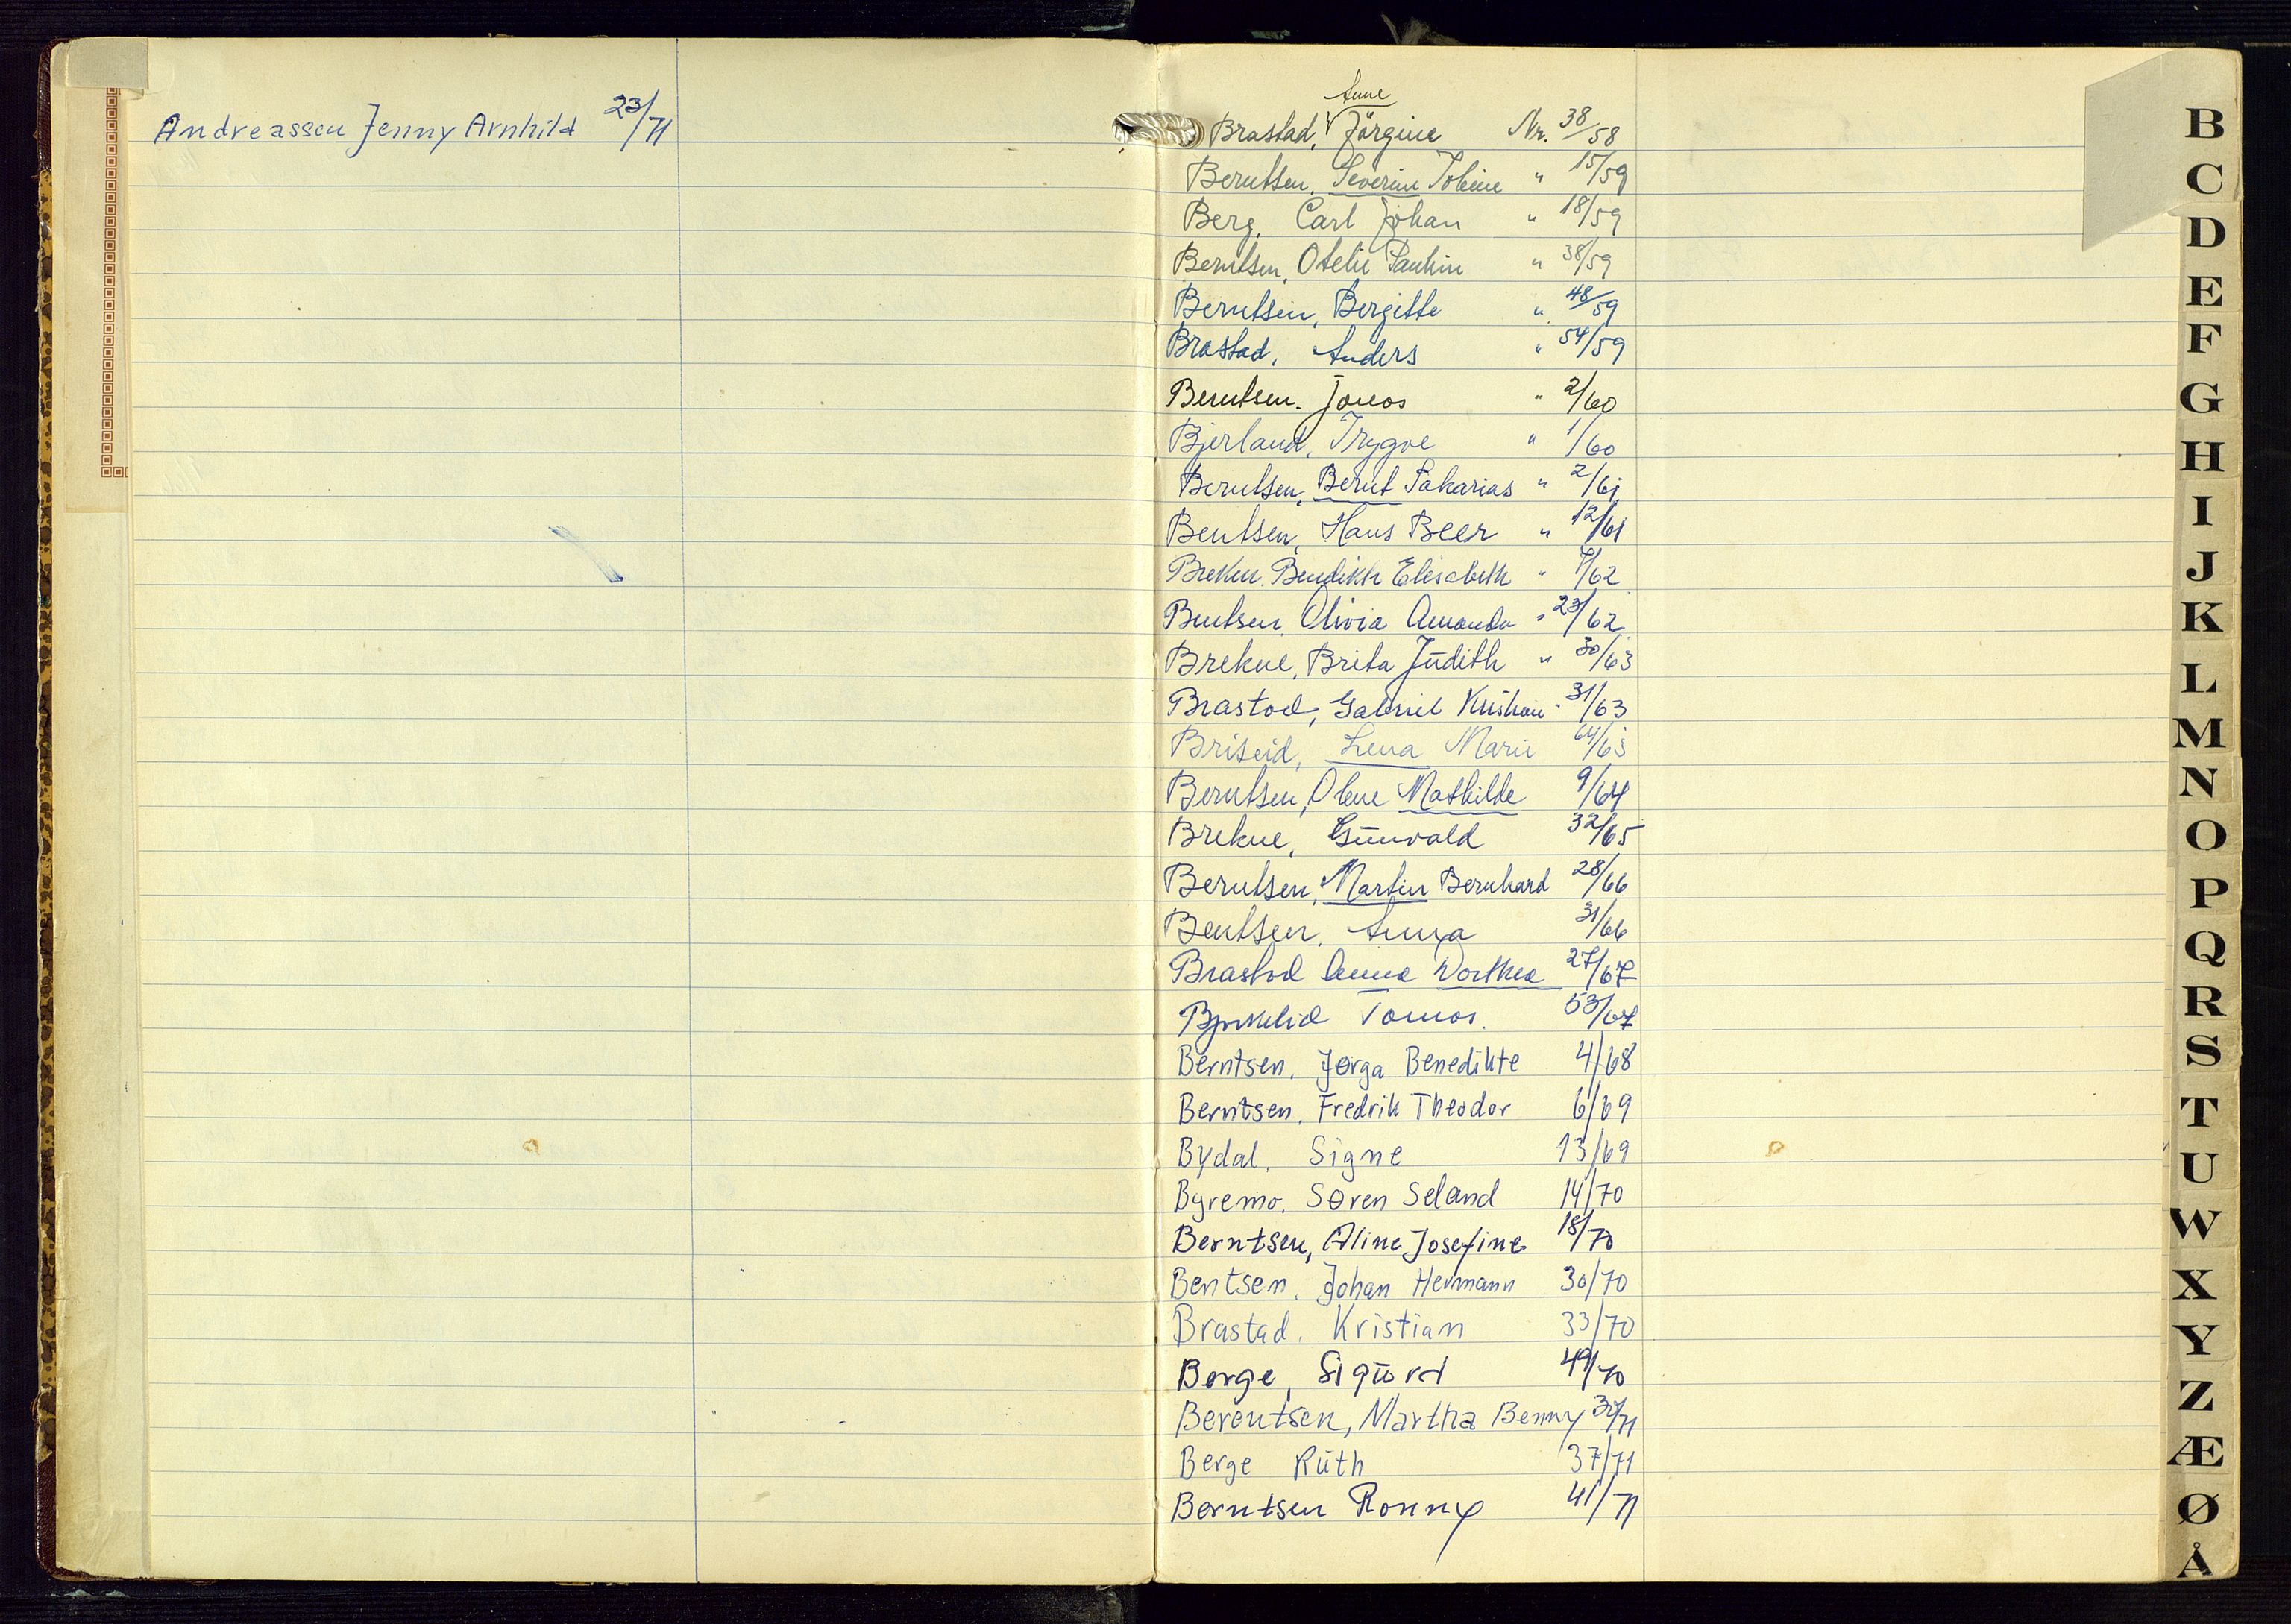 Andreassen Jenny Arnhild 23/71
Anne
Brastad, Jörgine Nr. 38/58
Berntsen, Severin Tobine " 15/59
Berg, Carl Johan " 18/59
Berntsen, Otelie Paulin " 38/59
Berntsen, Bergitte " 48/59
Brastad, Anders " 54/59
Berntsen. Jonas " 2/60
Bjerland, Trygve " 1/60
Berntsen, Bernt Sakarias " 2/61
Bentsen, Hans Beer " 12/61
Elisabeth " 7/62
Olivia Amanda " 23/62
Brekne, Brita Judith " 30/63
Brastad, Gabriel Kristian " 31/63
Briseid, Lena Marie 64/63
Berntsen, Olene Mathilde 9/64
Brekne, Gunvald 32/65
Berntsen, Martin Bernhard 28/66
Bentsen, Anna 31/66
Brastad Anna Dorthea 27/67
Tomas. 53/67
Berntsen. Jørga Benedikte 4/68
Berntsen. Fredrik Theodor 6/69
Bydal. Signe 13/69
Byremo. Søren Seland 14/70
Berntsen, Aline Josefine 18/70
Bentsen. Johan Hermann 30/70
Brastad. Kristian 33/70
Berge, Sigurd 49/70
Berentsen, Martha Benny 30/71
Berge Ruth 37/71
Berntsen Ronny 41/71
B
C
D
E
F
G
H
I
J
K
L
M
N
O
P
Q
R
S
T
U
W
X
Y
Z
Æ
Ø
Å